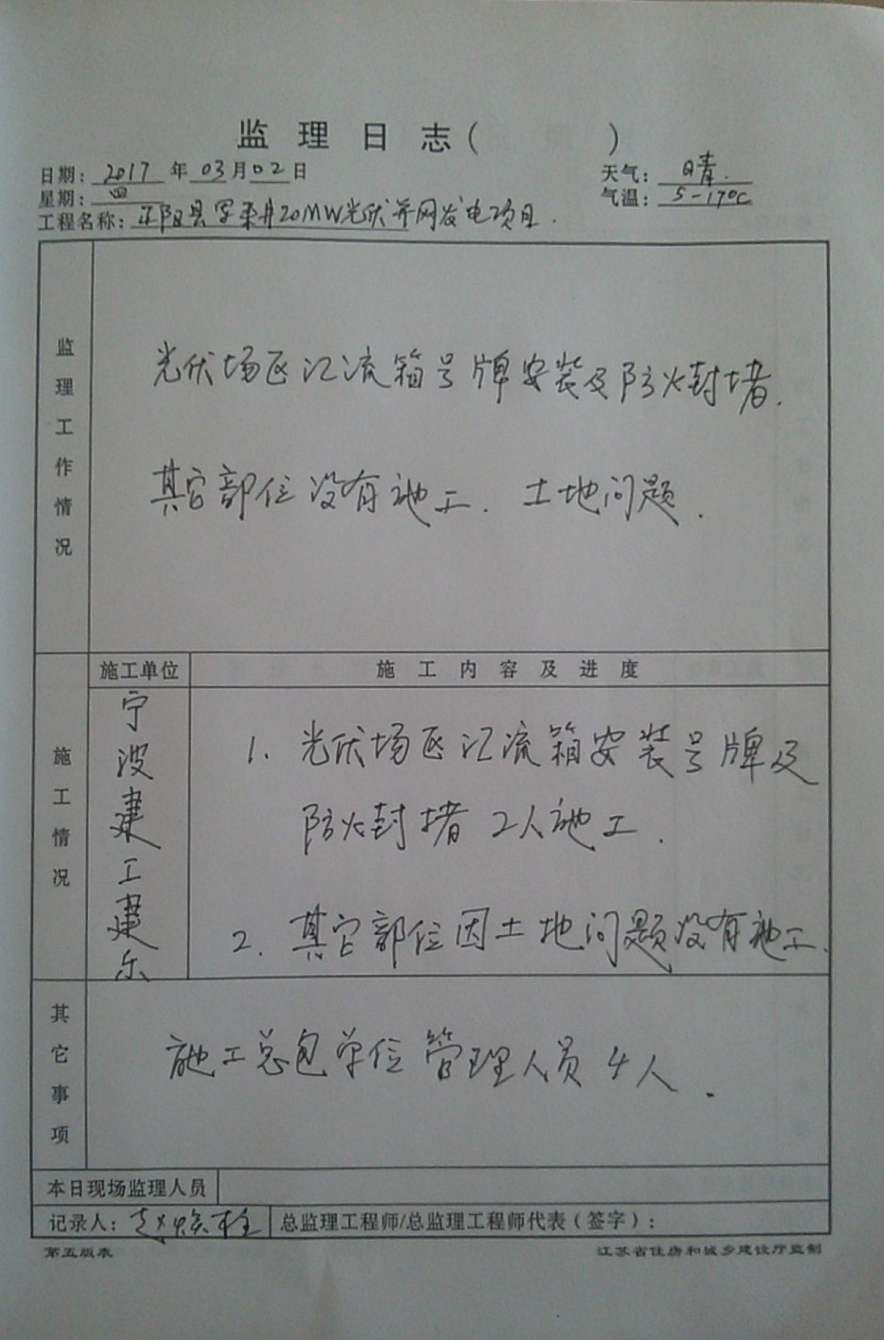 监理日志(        )
日期: 2017 年 03 月 02 日 天气: 晴.
星期: 四 气温: 5-17℃
工程名称: 20MW光伏并网发电项目.
监理工作情况
光伏场区汇流箱号牌安装及防火封堵.
其它部位没有施工. 土地问题.
施工情况
施工单位 施工内容及进度
宁波建工建乐
1. 光伏场区汇流箱安装号牌及
防火封堵 2人施工.
2. 其它部位因土地问题没有施工.
其它事项
施工总包单位管理人员4人.
本日现场监理人员
记录人: 赵焕柱 总监理工程师/总监理工程师代表(签字):
第五版表 江苏省住房和城乡建设厅监制